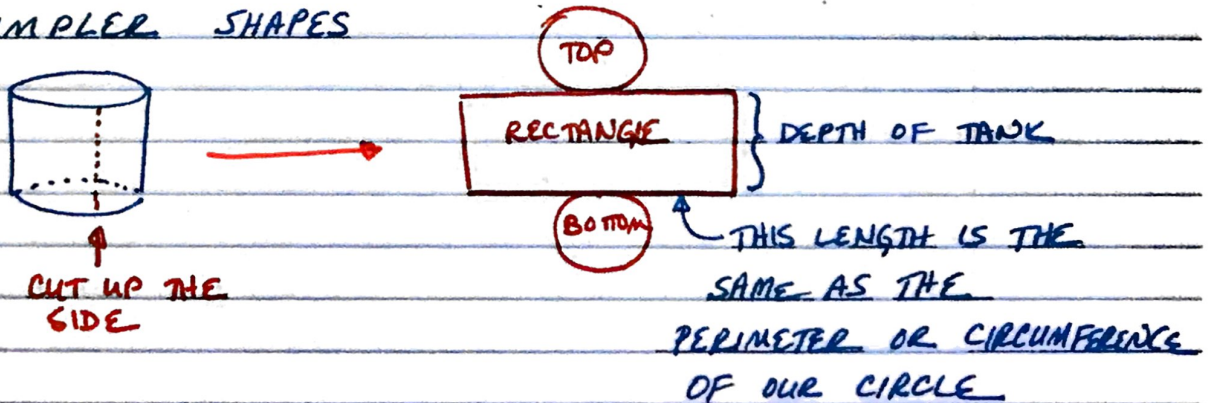 MPLER SHAPES
TOP
RECTANGLE
DEPTH OF TANK
BOTTOM
THIS LENGTH IS THE
SAME AS THE
PERIMETER OR CIRCUMFERENCE
OF OUR CIRCLE
CUT UP THE
SIDE